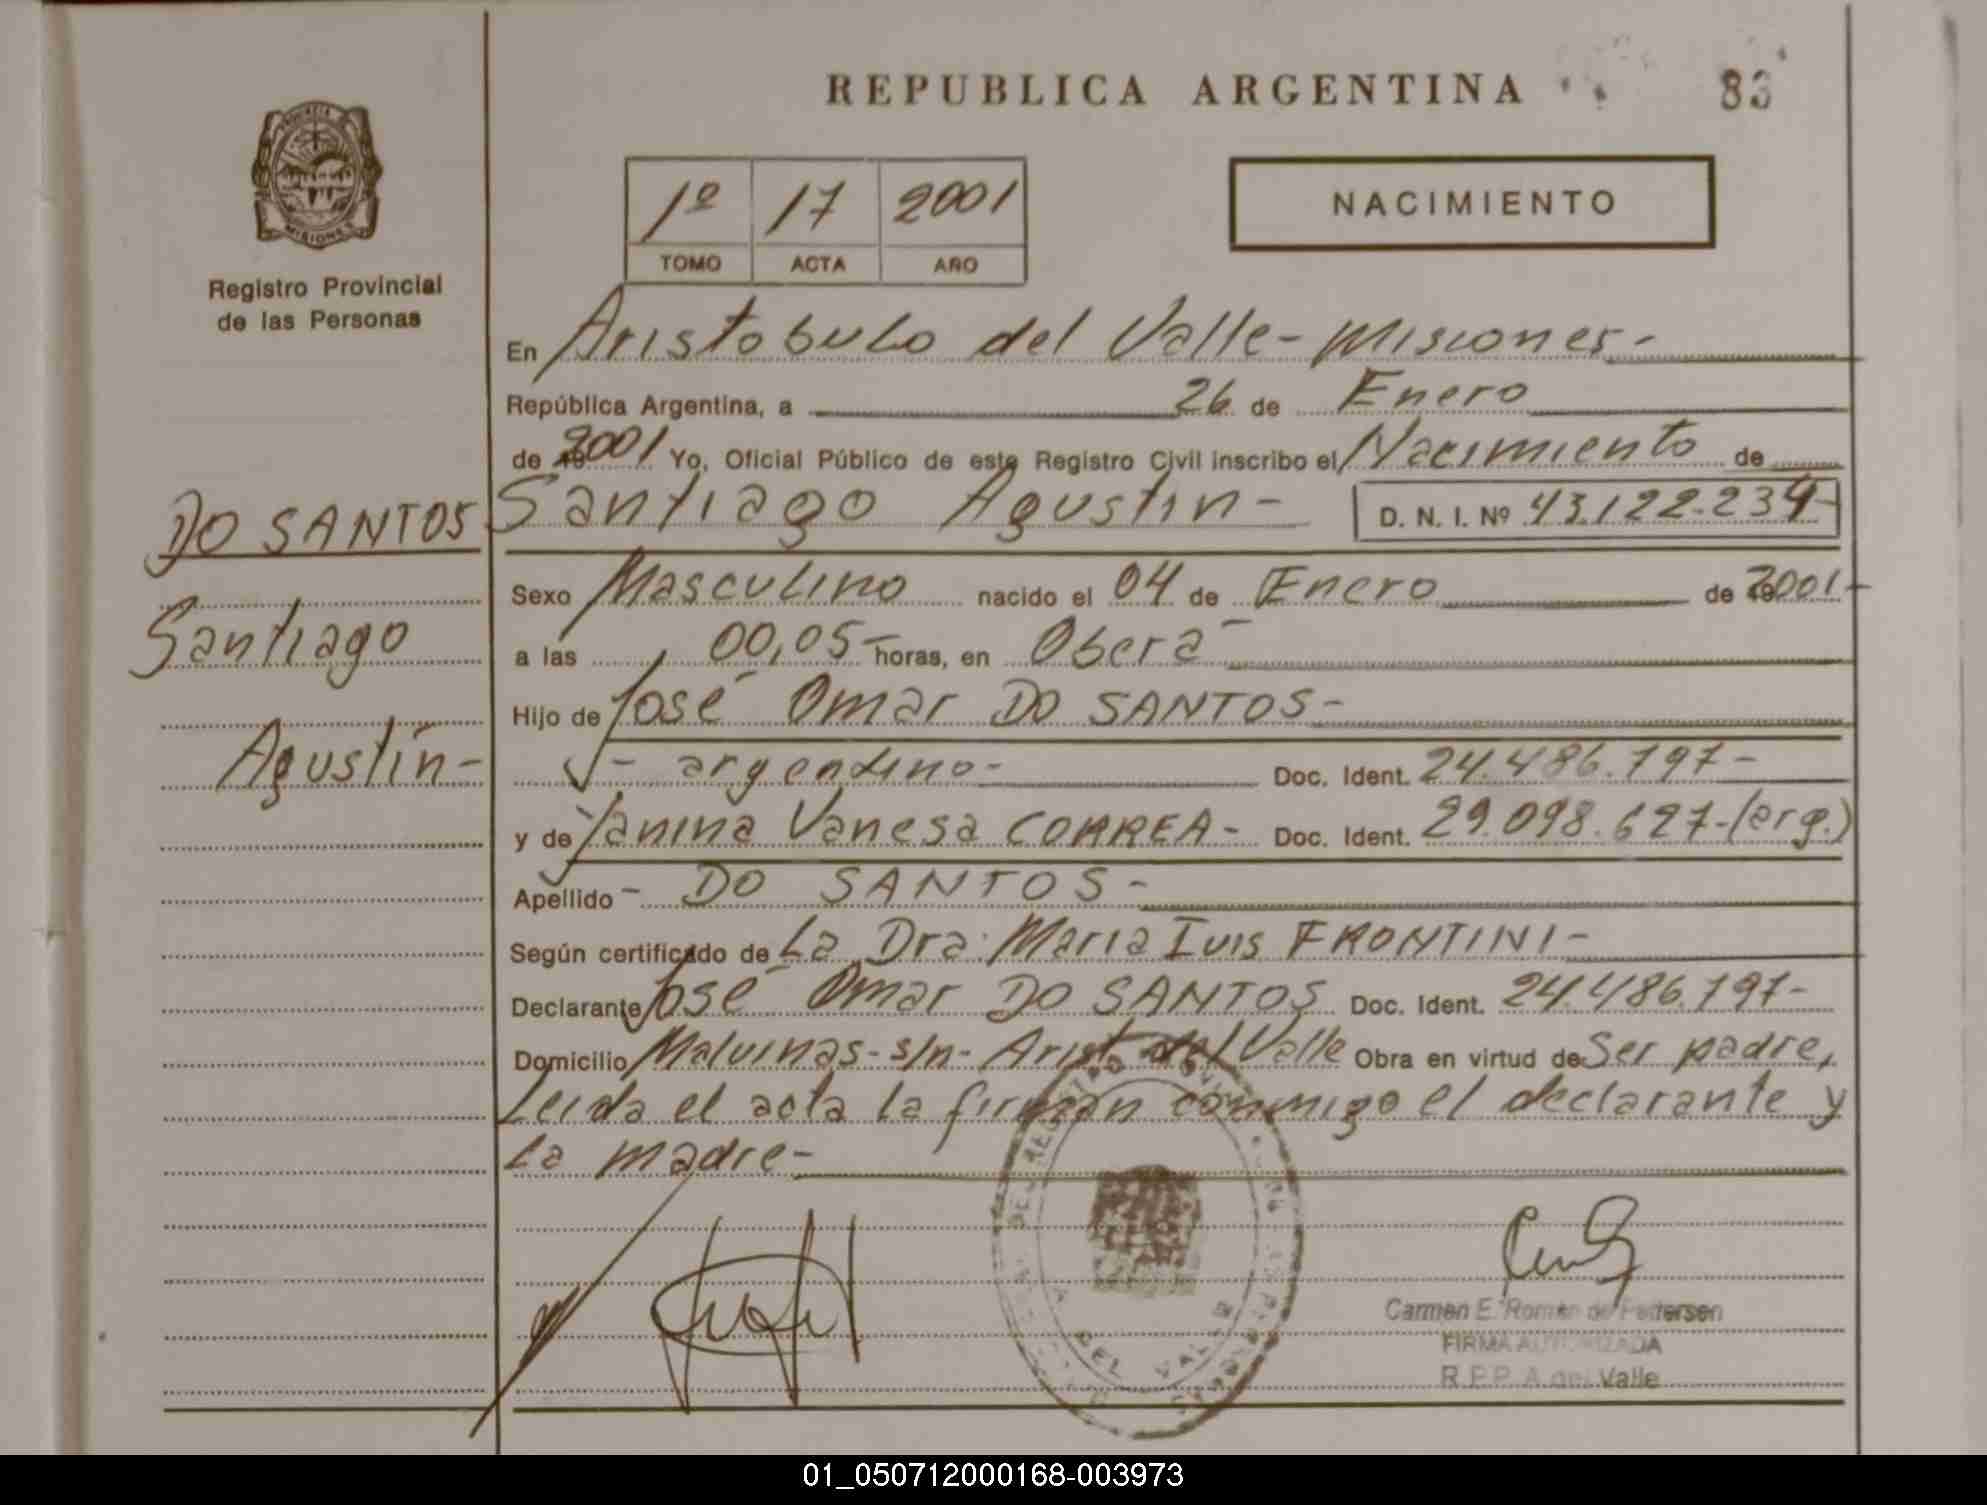 REPUBLICA ARGENTINA 83
PROVINCIA DE
MISIONES
Registro Provincial
de las Personas
1º 17 2001
TOMO ACTA AÑO
NACIMIENTO
En Aristobulo del Valle - Misiones -
República Argentina, a 26 de Enero
de 2001 Yo, Oficial Público de este Registro Civil inscribo el Nacimiento de
DO SANTOS
Santiago
Agustín -
Santiago Agustín - D. N. I. Nº 43.122.234 -
Sexo Masculino nacido el 04 de Enero de 2001 -
a las 00,05 - horas, en Oberá -
Hijo de José Omar DO SANTOS -
- argentino - Doc. Ident. 24.486.797 -
y de Yanina Vanesa CORREA - Doc. Ident. 29.098.627 - (arg.)
Apellido - DO SANTOS -
Según certificado de La Dra. Maria Luis FRONTINI -
Declarante José Omar DO SANTOS Doc. Ident. 24.486.797 -
Domicilio Malvinas - s/n - Arist. del Valle Obra en virtud de Ser padre,
Leida el acta la firman conmigo el declarante y
la madre -
DEL VALLE
Carmen E. Román de Pedersen
FIRMA AUTORIZADA
R.P.P. A. del Valle
01_050712000168-003973